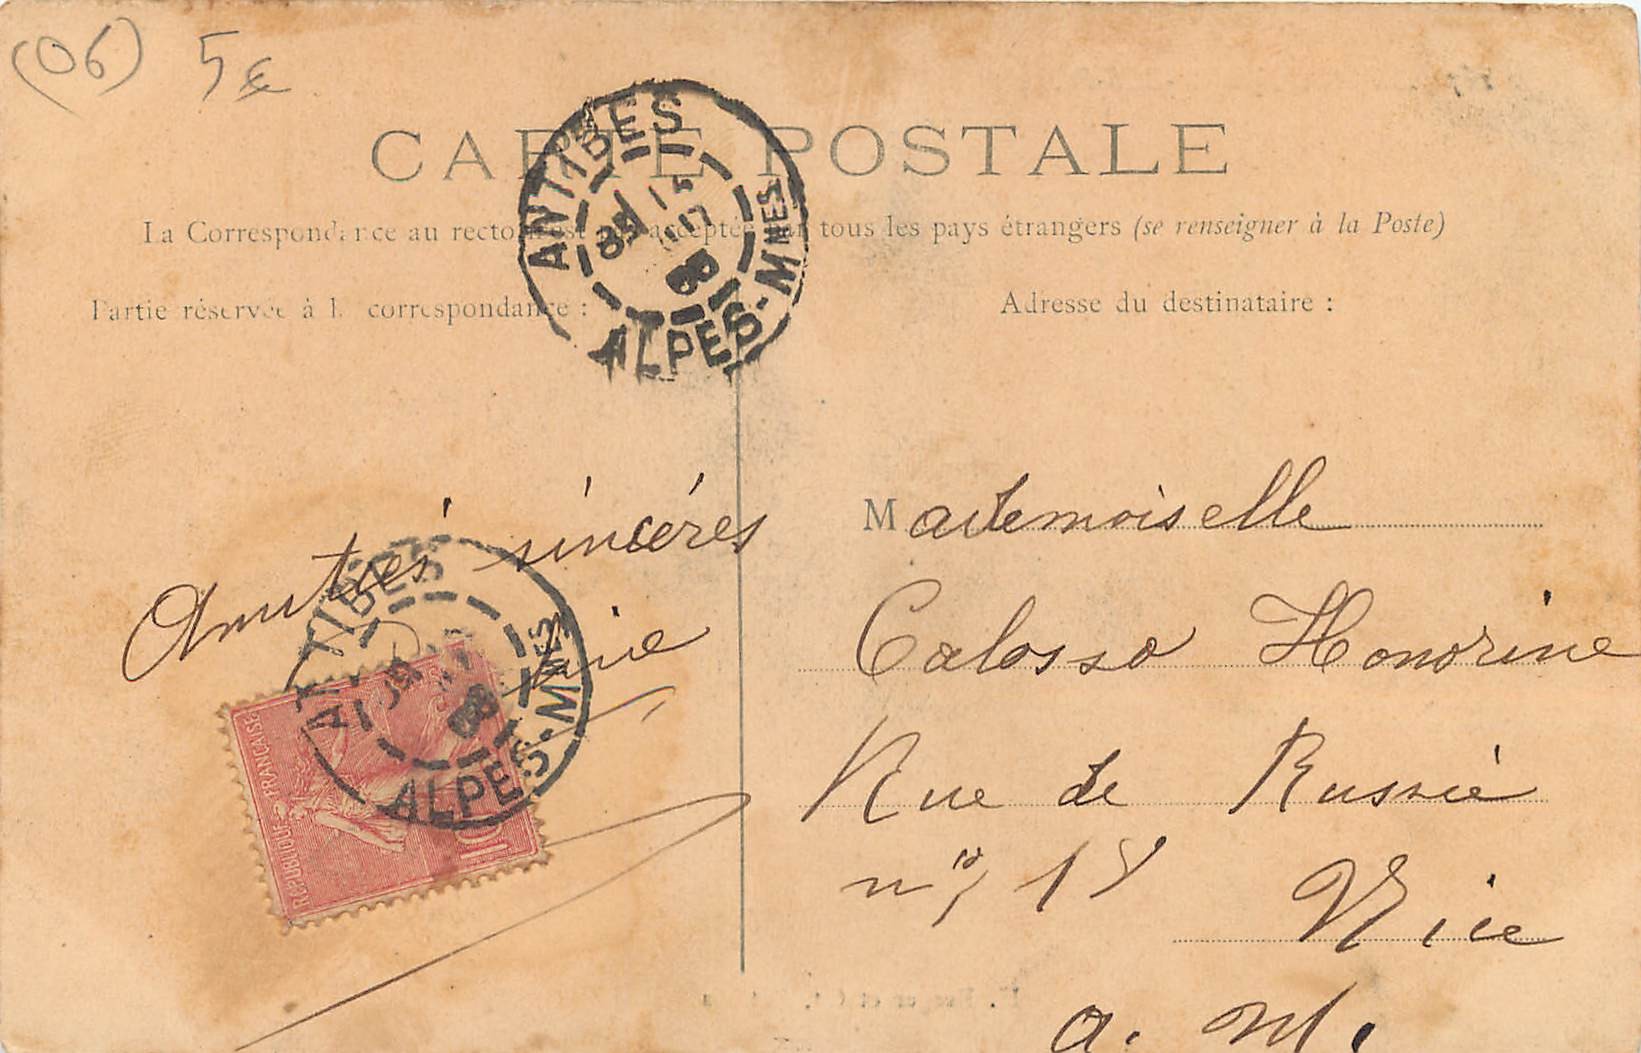 (06) 5€
CARTE POSTALE
La Correspondance au recto n'est pas acceptée par tous les pays étrangers (se renseigner à la Poste)
Partie réservée à la correspondance :
Adresse du destinataire :
ANTIBES
ALPES-MMES
Amitiés sincéres
Mademoiselle
Calosso Honorine
Rue de Russie
Nice
a. M.
ANTIBES
ALPES-MMES
REPUBLIQUE FRANÇAISE
10